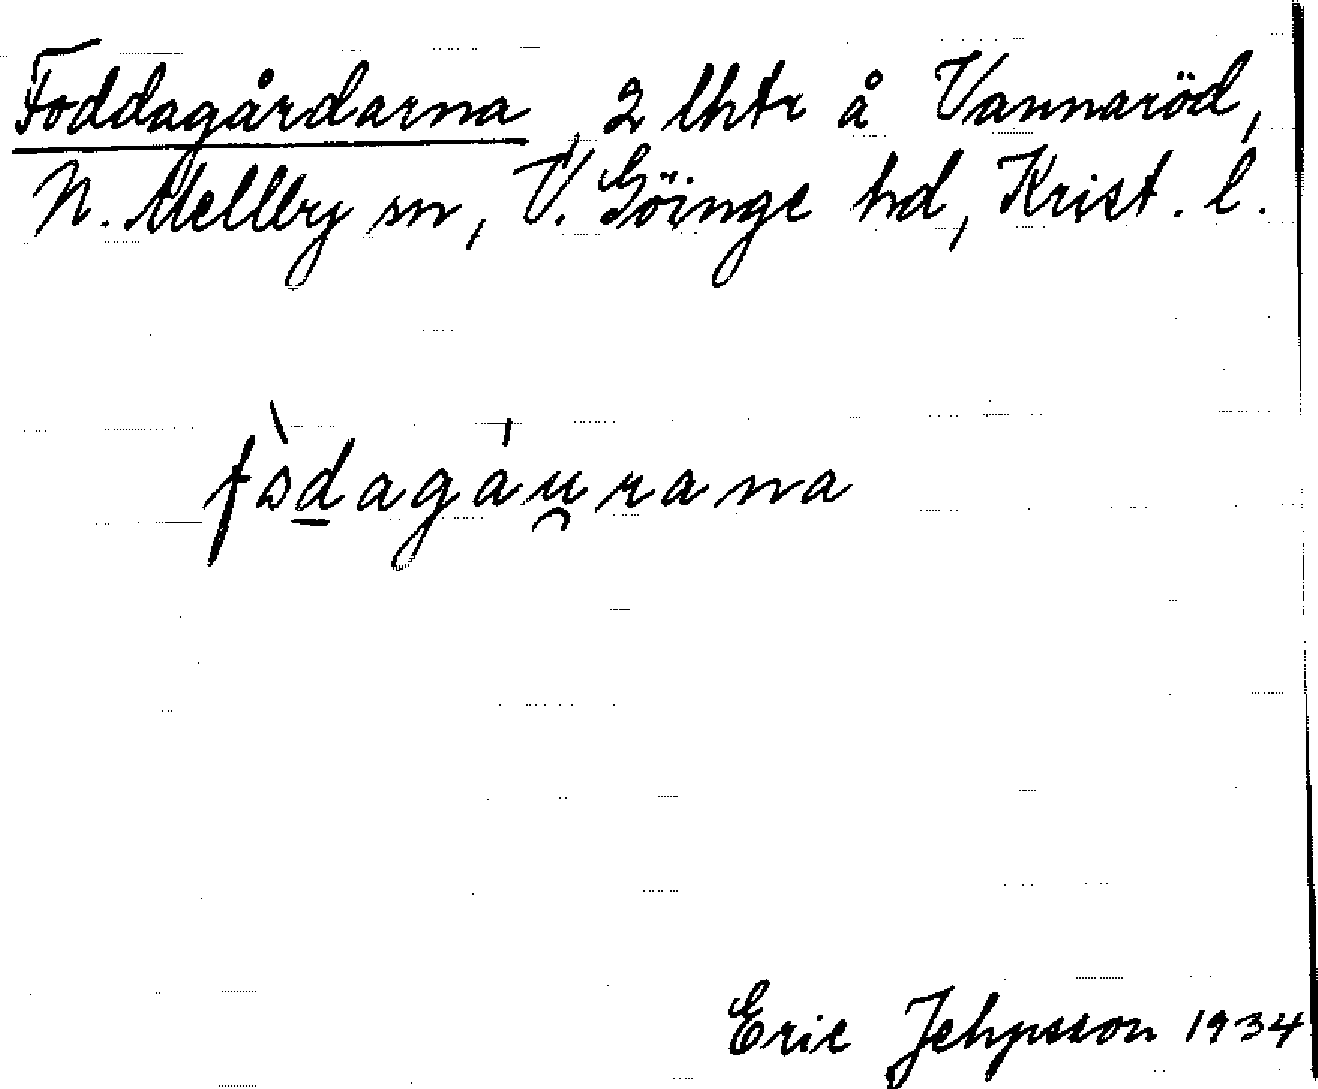 Foddagårdarna, 2 lhtr å Vannaröd,
N. Mellby sn, V. Göinge hd, Krist. l.
Eric Jehpsson 1934